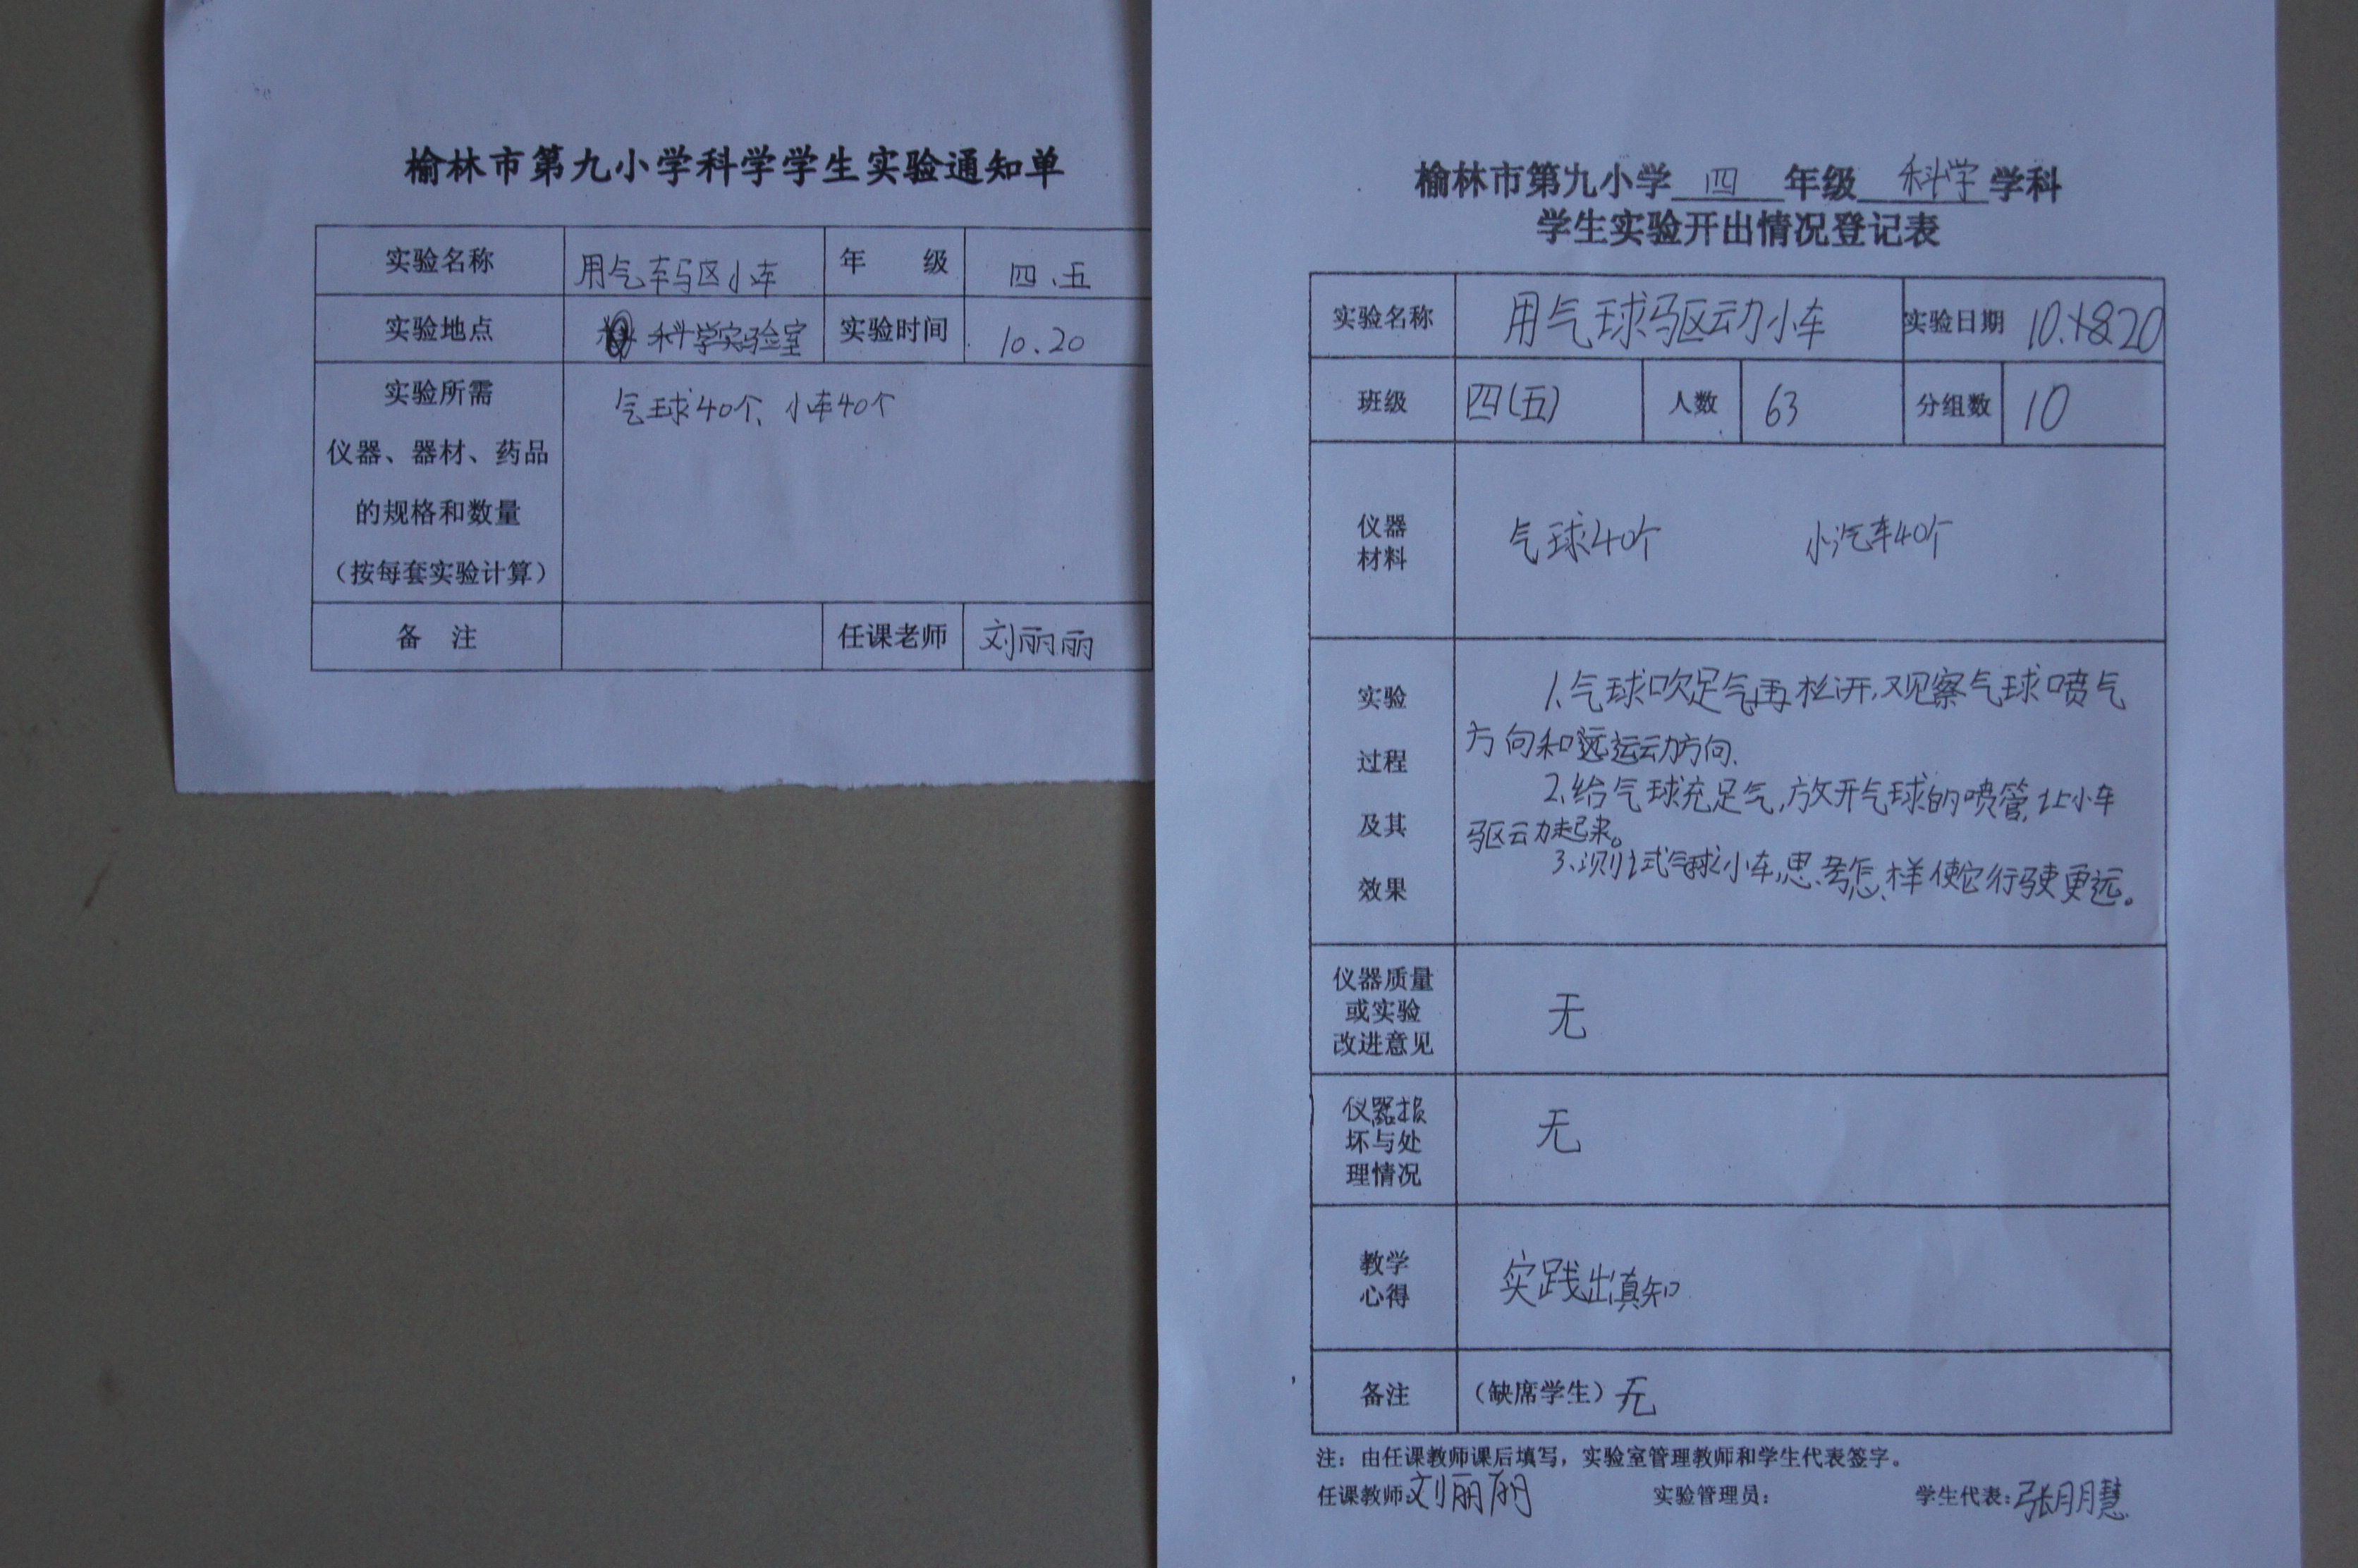 榆林市第九小学科学学生实验通知单
实验名称 用气车驱小车 年 级 四.五
实验地点 科学实验室 实验时间 10.20
实验所需 气球40个、小车40个
仪器、器材、药品
的规格和数量
（按每套实验计算）
备 注 任课老师 刘丽丽
榆林市第九小学 四 年级 科学 学科
学生实验开出情况登记表
实验名称 用气球驱动小车 实验日期 10.20
班级 四(五) 人数 63 分组数 10
仪器
材料
气球40个 小汽车40个
实验
过程
及其
效果
1.气球吹足气再松开,观察气球喷气
方向和运动方向.
2.给气球充足气,放开气球的喷管,让小车
驱动起来。
3.测试气球小车,思考怎样使它行驶更远。
仪器质量
或实验
改进意见
无
仪器损
坏与处
理情况
无
教学
心得
实践出真知
备注 （缺席学生）无
注：由任课教师课后填写，实验室管理教师和学生代表签字。
任课教师:刘丽丽 实验管理员： 学生代表:张月慧